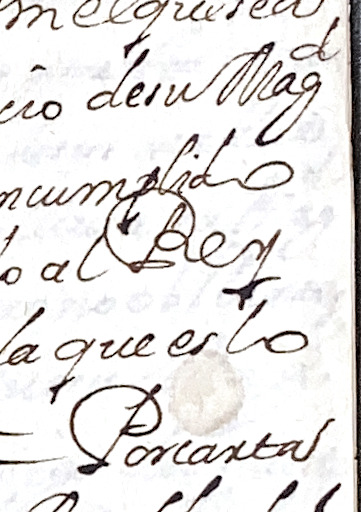 el que sea
cio de su Mag^d
incumplido
lo al Rey
la que es lo
Por carta